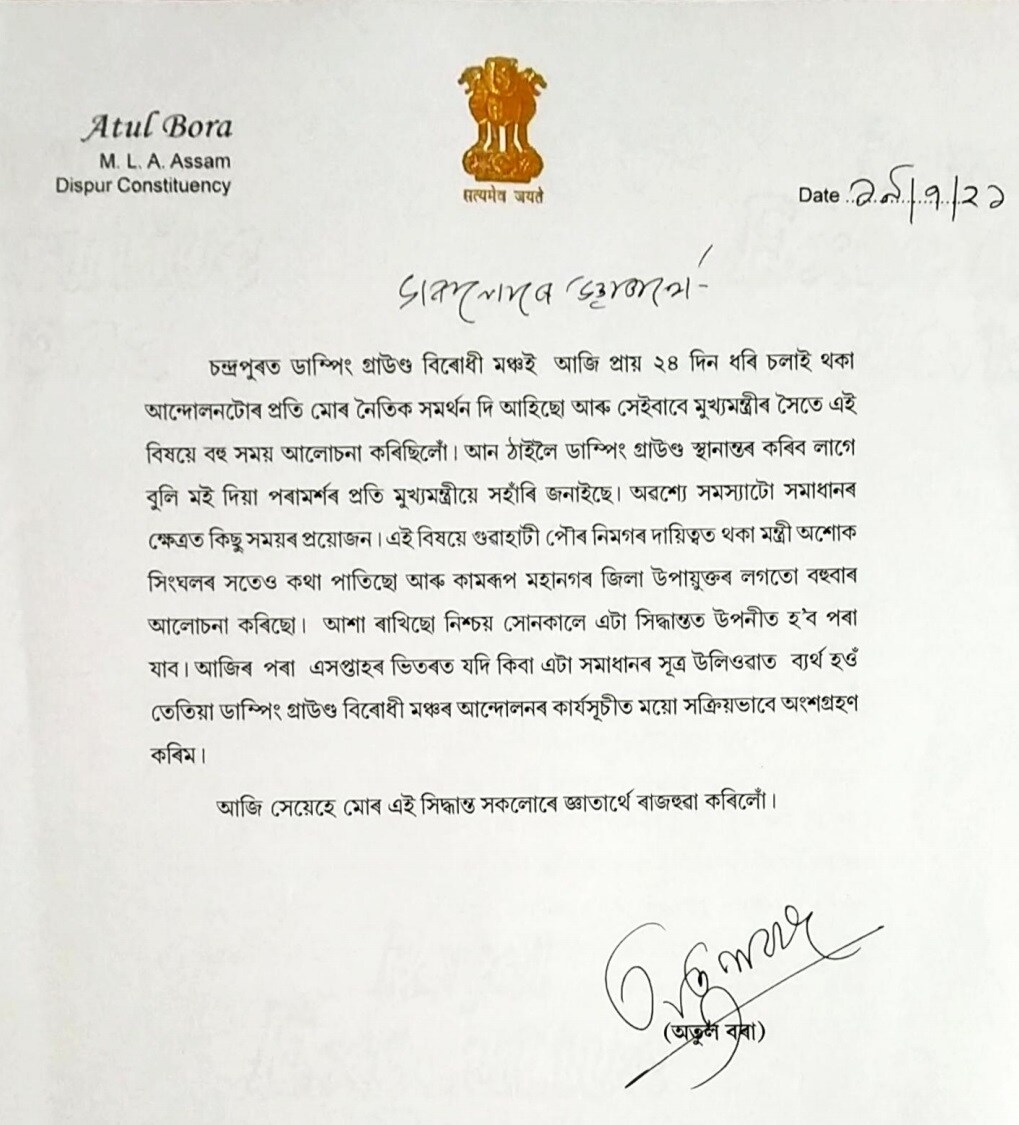 Atul Bora
M. L. A. Assam
Dispur Constituency
सत्यमेव जयते
Date ১৯/৭/২১
চন্দ্ৰপুৰত ডাম্পিং গ্ৰাউণ্ড বিৰোধী মঞ্চই আজি প্ৰায় ২৪ দিন ধৰি চলাই থকা
আন্দোলনটোৰ প্ৰতি মোৰ নৈতিক সমৰ্থন দি আহিছো আৰু সেইবাবে মুখ্যমন্ত্ৰীৰ সৈতে এই
বিষয়ে বহু সময় আলোচনা কৰিছিলোঁ। আন ঠাইলৈ ডাম্পিং গ্ৰাউণ্ড স্থানান্তৰ কৰিব লাগে
বুলি মই দিয়া পৰামৰ্শৰ প্ৰতি মুখ্যমন্ত্ৰীয়ে সহাঁৰি জনাইছে। অৱশ্যে সমস্যাটো সমাধানৰ
ক্ষেত্ৰত কিছু সময়ৰ প্ৰয়োজন। এই বিষয়ে গুৱাহাটী পৌৰ নিমগৰ দায়িত্বত থকা মন্ত্ৰী অশোক
সিংঘলৰ সতেও কথা পাতিছো আৰু কামৰূপ মহানগৰ জিলা উপায়ুক্তৰ লগতো বহুবাৰ
আলোচনা কৰিছো। আশা ৰাখিছো নিশ্চয় সোনকালে এটা সিদ্ধান্তত উপনীত হ'ব পৰা
যাব। আজিৰ পৰা এসপ্তাহৰ ভিতৰত যদি কিবা এটা সমাধানৰ সূত্ৰ উলিওৱাত ব্যৰ্থ হওঁ
তেতিয়া ডাম্পিং গ্ৰাউণ্ড বিৰোধী মঞ্চৰ আন্দোলনৰ কাৰ্যসূচীত ময়ো সক্ৰিয়ভাবে অংশগ্ৰহণ
কৰিম।
আজি সেয়েহে মোৰ এই সিদ্ধান্ত সকলোৰে জ্ঞাতাৰ্থে ৰাজহুৱা কৰিলোঁ।
(অতুল বৰা)